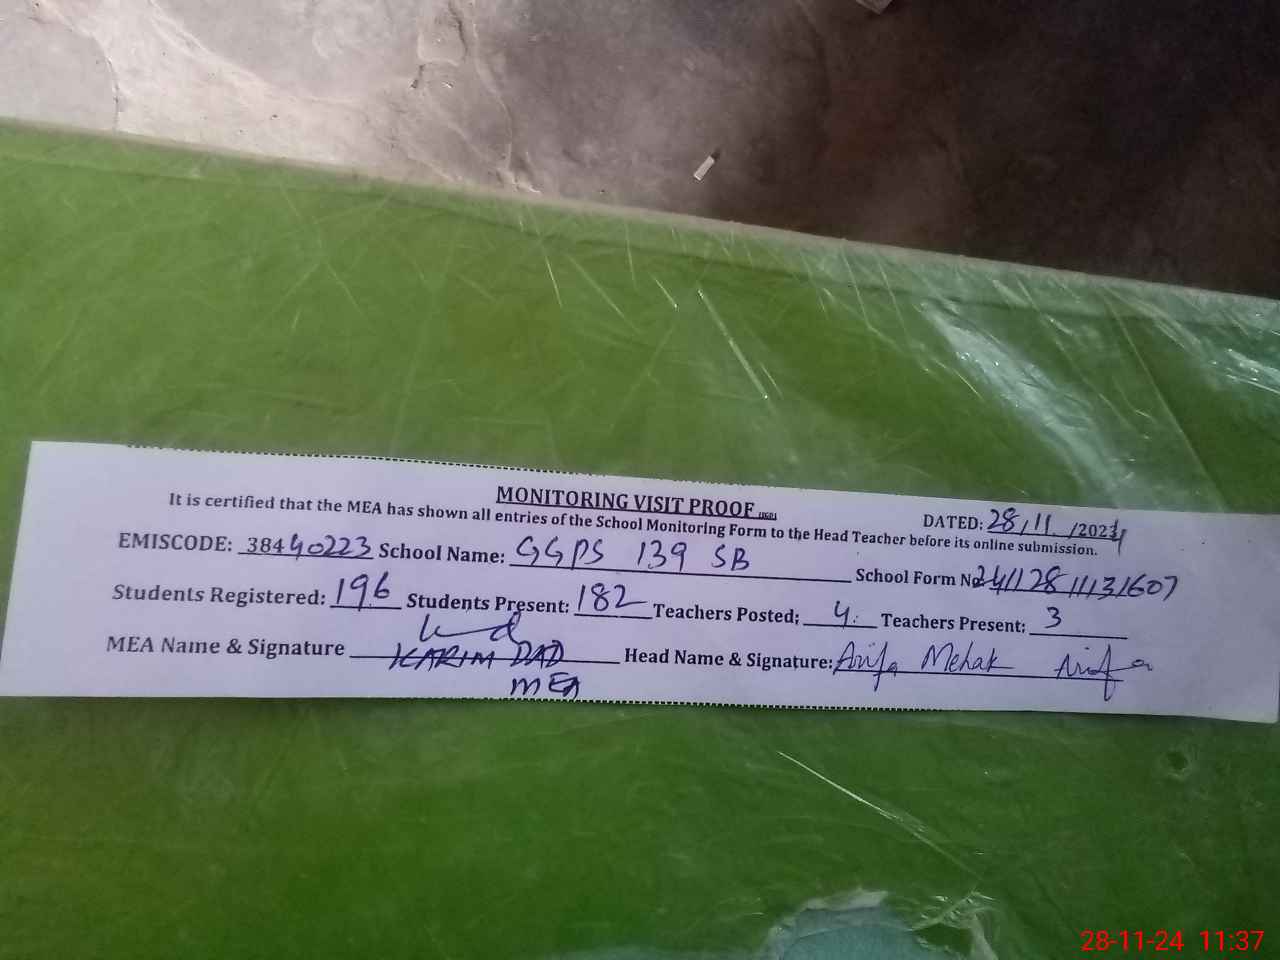 MONITORING VISIT PROOF
DATED: 28/11/2024
It is certified that the MEA has shown all entries of the School Monitoring Form to the Head Teacher before its online submission.
EMISCODE: 38440223 School Name: GGPS 139 SB School Form No 241128 11131607
Students Registered: 196 Students Present: 182 Teachers Posted; 4. Teachers Present: 3
MEA Name & Signature KARIM DAD Head Name & Signature: Arifa Mehak Arifa
MEA
28-11-24 11:37